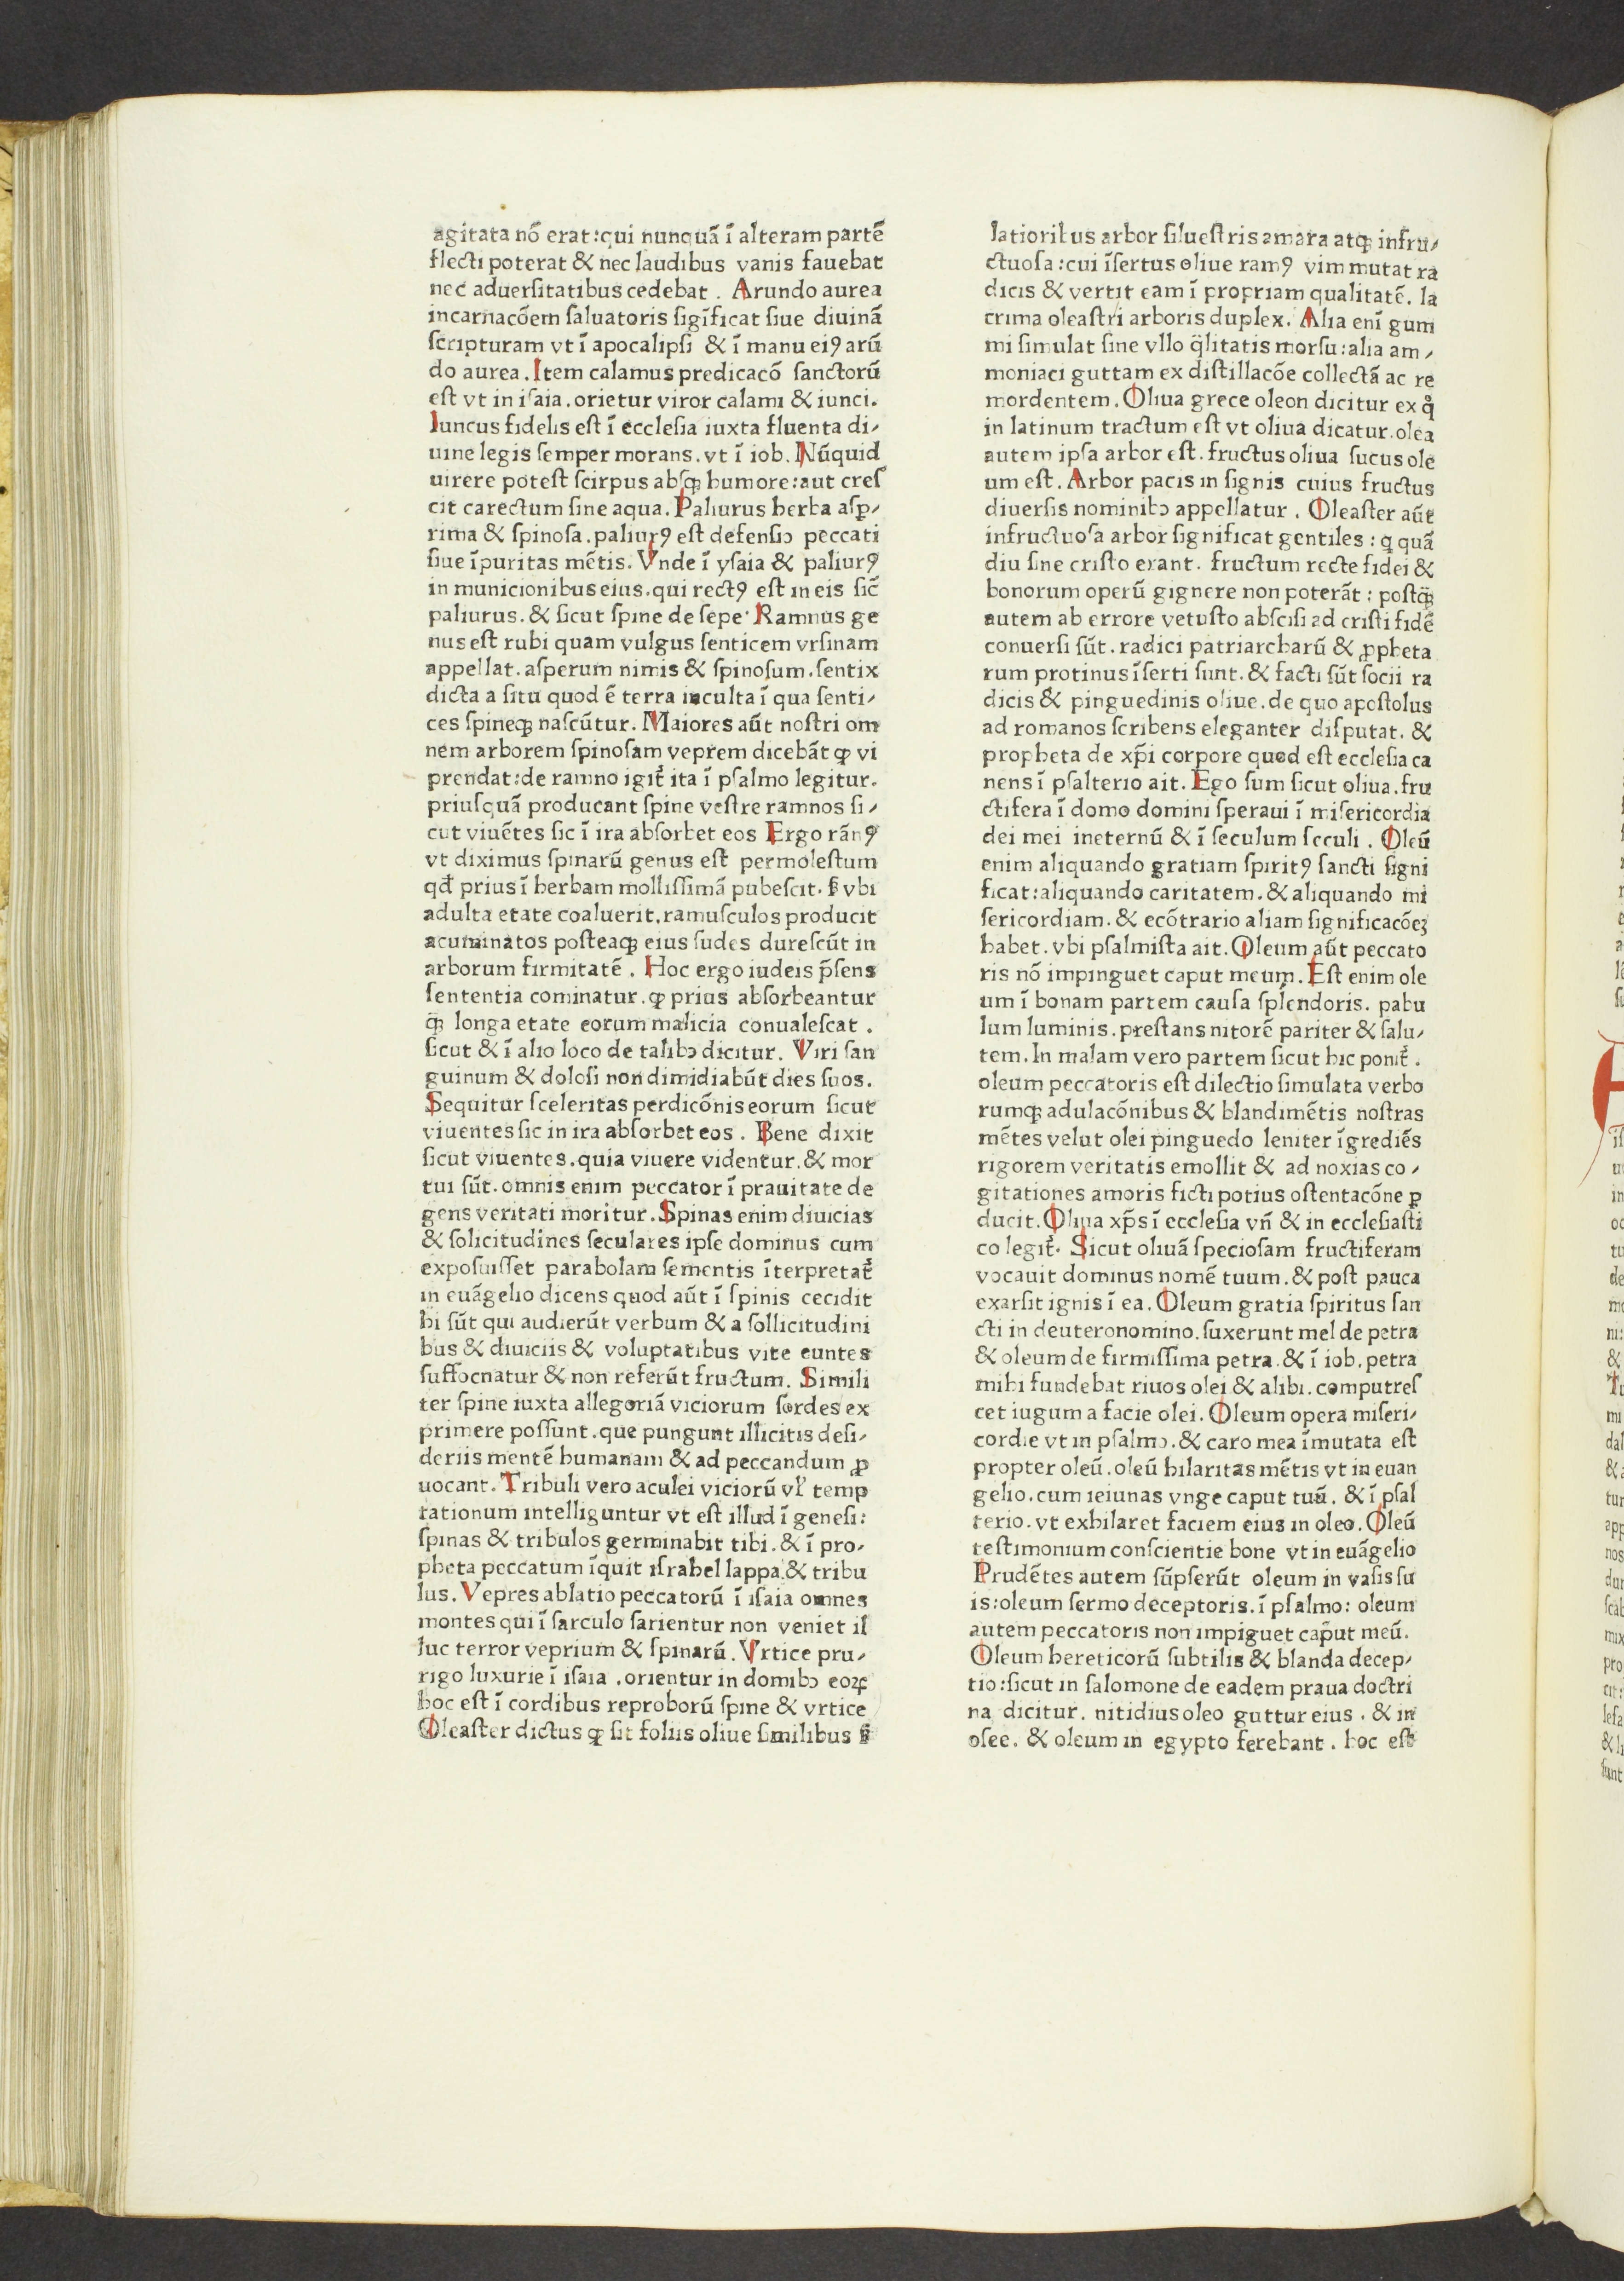 agitata nō erat:qui nunquā ī alteram partē
flecti poterat & nec laudibus vanis fauebat
nec aduerſitatibus cedebat . Arundo aurea
incarnacōem ſaluatoris ſigīficat ſiue diuinā
ſcripturam vt ī apocalipſi & ī manu eiꝰ arū
do aurea . Item calamus predicacō ſanctorū
eſt vt in iſaia . orietur viror calami & iunci.
Iuncus fidelis eſt ī eccleſia iuxta fluenta di⸗
uine legis ſemper morans . vt ī iob. Nūquid
uirere poteſt ſcirpus abſqꝫ humore:aut creſ
cit carectum ſine aqua. Paliurus herba aſꝑ⸗
rima & ſpinoſa . paliurꝰ eſt defenſio peccati
ſiue īpuritas mētis. Vnde ī yſaia & paliurꝰ
in municionibus eius . qui rectꝰ eſt in eis ſic̄
paliurus . & ſicut ſpine de ſepe· Ramnus ge
nus eſt rubi quam vulgus ſenticem vrſinam
appellat . aſperum nimis & ſpinoſum . ſentix
dicta a ſitu quod ē terra inculta ī qua ſenti⸗
ces ſpineqꝫ naſcūtur. Maiores aūt noſtri om
nem arborem ſpinoſam veprem dicebāt ꝙ vi
prendat:de ramno igit᷑ ita ī pſalmo legitur.
priuſquā producant ſpine veſtre ramnos ſi⸗
cut viuētes ſic ī ira abſorbet eos Ergo rānꝰ
vt diximus ſpinarū genus eſt permoleſtum
qđ prius ī herbam molliſſimā pubeſcit. ẜ vbi
adulta etate coaluerit, ramuſculos producit
acuminatos poſteaqꝫ eius ſudes dureſcūt in
arborum firmitatē . Hoc ergo iudeis p̄ſens
ſententia cominatur . ꝙ prius abſorbeantur
q̄ꝫ longa etate eorum malicia conualeſcat .
ſicut & ī alio loco de talibꝫ dicitur. Viri ſan
guinum & doloſi non dimidiabūt dies ſuos.
Sequitur ſceleritas perdicōnis eorum ſicut
viuentes ſic in ira abſorbet eos . Bene dixit
ſicut viuentes. quia viuere videntur. & mor
tui ſūt. omnis enim peccator ī prauitate de
gens veritati moritur. Spinas enim diuicias
& ſolicitudines ſeculares ipſe dominus cum
expoſuiſſet parabolam ſementis īterpretat᷑
in euāgelio dicens quod aūt ī ſpinis cecidit
hi ſūt qui audierūt verbum & a ſollicitudini
bus & diuiciis & voluptatibus vite euntes
ſuffocnatur & non referūt fructum. Simili
ter ſpine iuxta allegoriā viciorum ſordes ex
primere poſſunt . que pungunt illicitis deſi⸗
deriis mentē humanam & ad peccandum ꝓ
uocant. Tribuli vero aculei viciorū vl̓ temp
tationum intelliguntur vt eſt illud ī geneſi:
ſpinas & tribulos germinabit tibi. & ī pro⸗
pheta peccatum īquit iſrahel lappa. & tribu
lus. Vepres ablatio peccatorū ī iſaia omnes
montes qui ī ſarculo ſarientur non veniet il
luc terror veprium & ſpinarū . Vrtice pru⸗
rigo luxurie ī iſaia . orientur in domibꝫ eoꝝ
hoc eſt ī cordibus reproborū ſpine & vrtice
Oleaſter dictus ꝙ ſit foliis oliue ſimilibus ẜ
latioribus arbor ſilueſtris amara atqꝫ infru⸗
ctuoſa:cui īſertus oliue ramꝰ vim mutat ra
dicis & vertit eam ī propriam qualitatē. la
crima oleaſtri arboris duplex. Alia enī gum
mi ſimulat ſine vllo q̄litatis morſu:alia am⸗
moniaci guttam ex diſtillacōe collectā ac re
mordentem . Oliua grece oleon dicitur ex qͦ
in latinum tractum eſt vt oliua dicatur. olea
autem ipſa arbor eſt. fructus oliua ſucus ole
um eſt. Arbor pacis in ſignis cuius fructus
diuerſis nominibꝫ appellatur . Oleaſter aūt
infructuoſa arbor ſignificat gentiles : q quā
diu ſine criſto erant. fructum recte fidei &
bonorum operū gignere non poterāt : poſtq̄ꝫ
autem ab errore vetuſto abſciſi ad criſti fidē
conuerſi ſūt . radici patriarcharū & ꝓpheta
rum protinus īſerti ſunt. & facti ſūt ſocii ra
dicis & pinguedinis oliue. de quo apoſtolus
ad romanos ſcribens eleganter diſputat. &
propheta de xp̄i corpore quod eſt eccleſia ca
nens ī pſalterio ait. Ego ſum ſicut oliua. fru
ctifera ī domo domini ſperaui ī miſericordia
dei mei ineternū & ī ſeculum ſeculi . Oleū
enim aliquando gratiam ſpiritꝰ ſancti ſigni
ficat:aliquando caritatem. & aliquando mi
ſericordiam. & ecōtrario aliam ſignificacōeꝫ
habet. vbi pſalmiſta ait. Oleum aūt peccato
ris nō impinguet caput meum. Eſt enim ole
um ī bonam partem cauſa ſplendoris. pabu
lum luminis. preſtans nitorē pariter & ſalu⸗
tem. In malam vero partem ſicut hic ponit᷑.
oleum peccatoris eſt dilectio ſimulata verbo
rumqꝫ adulacōnibus & blandimētis noſtras
mētes velut olei pinguedo leniter īgrediēs
rigorem veritatis emollit & ad noxias co⸗
gitationes amoris ficti potius oſtentacōne ꝑ
ducit. Oliua xp̄s ī eccleſia vn̄ & in eccleſiaſti
co legit᷑. Sicut oliuā ſpecioſam fructiferam
vocauit dominus nomē tuum. & poſt pauca
exarſit ignis ī ea. Oleum gratia ſpiritus ſan
cti in deuteronomino. ſuxerunt mel de petra
& oleum de firmiſſima petra . & ī iob. petra
mihi fundebat riuos olei & alibi. computreſ
cet iugum a facie olei. Oleum opera miſeri⸗
cordie vt in pſalmo. & caro mea īmutata eſt
propter oleū . oleū hilaritas mētis vt in euan
gelio. cum ieiunas vnge caput tuū. & ī pſal
terio. vt exhilaret faciem eius in oleo. Oleū
teſtimonium conſcientie bone vt in euāgelio
Prudētes autem ſūpſerūt oleum in vaſis ſu
is:oleum ſermo deceptoris. ī pſalmo: oleum
autem peccatoris non impiguet caput meū.
Oleum hereticorū ſubtilis & blanda decep⸗
tio:ſicut in ſalomone de eadem praua doctri
na dicitur. nitidius oleo guttur eius . & in
oſee. & oleum in egypto ferebant . hoc eſt